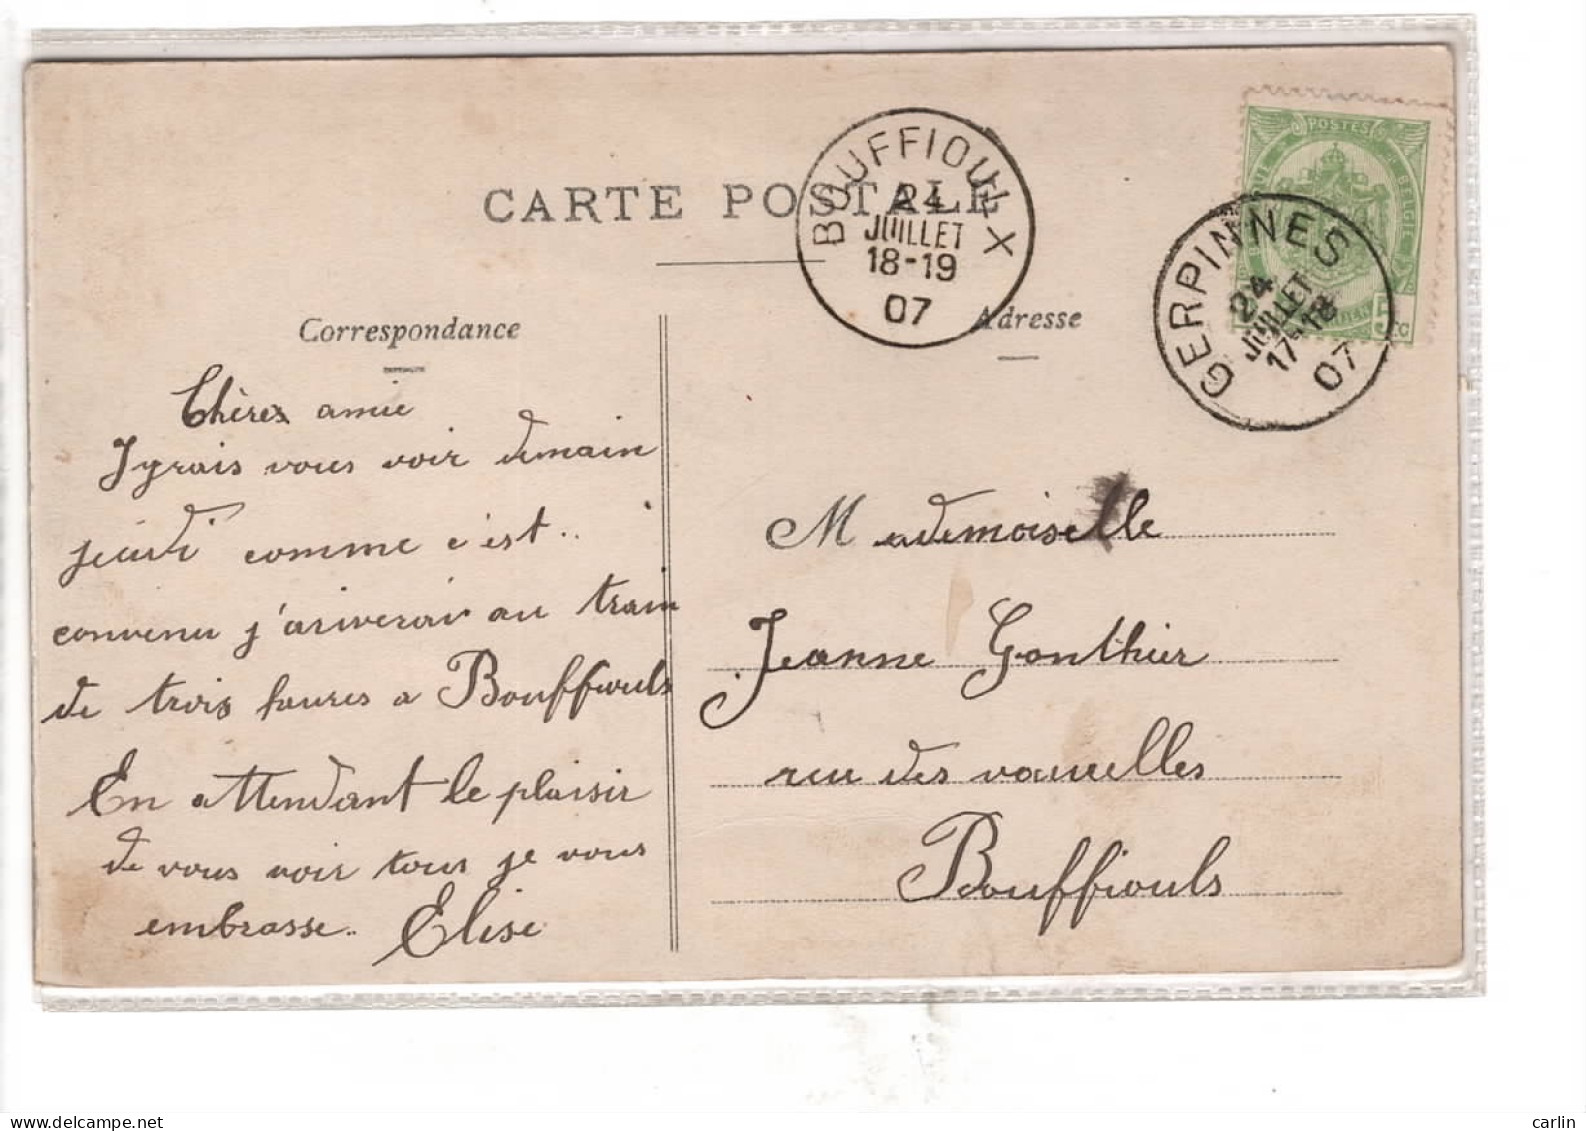 CARTE POSTALE
BOUFFIOULX
24
JUILLET
18-19
07
POSTES
BELGIE
GERPINNES
24
JUILLET
17-18
07
5 c
Correspondance
Chères amie
J'yrais vous voir demain
jeudi comme c'est..
convenu j'ariverai au train
de trois heures a Bouffiouls
En attendant le plaisir
de vous voir tous je vous
embrasse.. Elise
Adresse
Mademoiselle
Jeanne Gonthier
rue des
Bouffiouls
www.delcampe.net
carlin